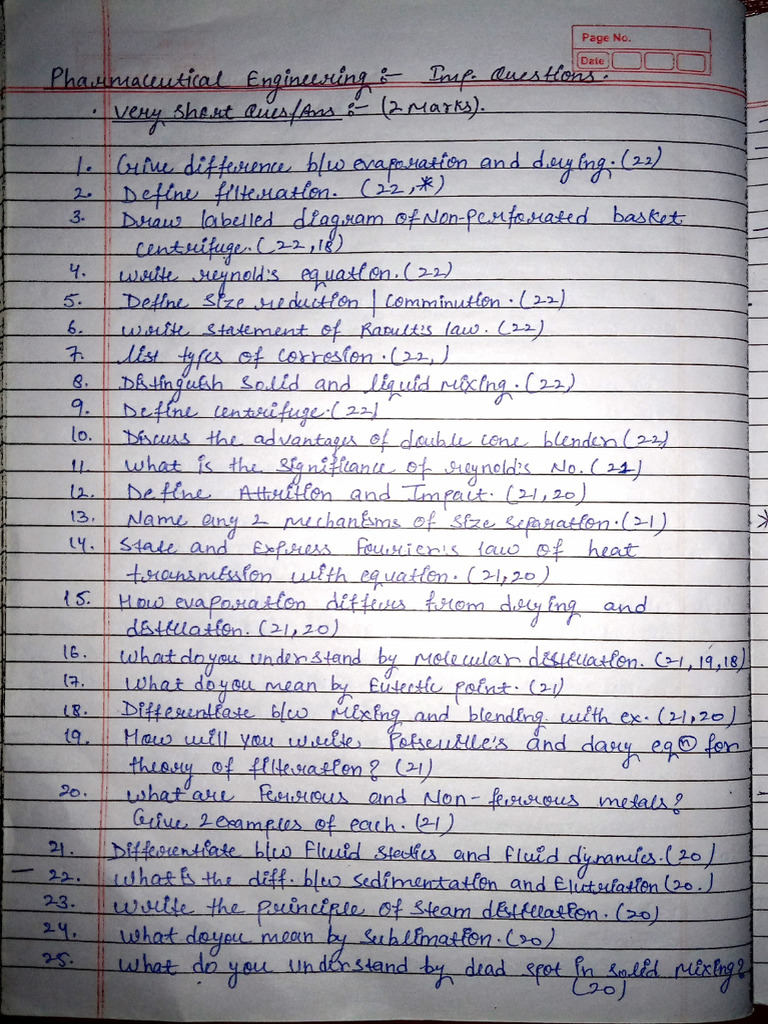 Page No.
Date
Pharmaceutical Engineering :- Imp. Questions.
. Very Short Ques/Ans :- (2 Marks).
1. Give difference b/w evaporation and drying. (22)
2. Define filteration. (22,*)
3. Draw labelled diagram of Non-perforated basket
centrifuge. (22,18)
4. Write reynold's equation. (22)
5. Define size reduction / Comminution. (22)
6. Write statement of Raoult's law. (22)
7. list types of corrosion. (22,)
8. Distinguish solid and liquid mixing. (22)
9. Define centrifuge. (22)
10. Discuss the advantages of double cone blender (22)
11. What is the significance of reynold's No. (21)
12. Define Attrition and Impact. (21,20)
13. Name any 2 mechanisms of size separation. (21)
14. State and Express Fourier's law of heat
transmission with equation. (21,20)
15. How evaporation differs from drying and
distillation. (21,20)
16. What do you understand by molecular distillation. (21,19,18)
17. What do you mean by Eutectic point. (21)
18. Differentiate b/w Mixing and blending with ex. (21,20)
19. How will you write Poiseuille's and darcy eqⓝ for
theory of filteration? (21)
20. What are Ferrous and Non-ferrous metals?
Give 2 examples of each. (21)
21. Differentiate b/w Fluid statics and fluid dynamics. (20)
22. What is the diff. b/w sedimentation and Elutriation (20.)
23. Write the principle of steam distillation. (20)
24. What do you mean by sublimation. (20)
25. What do you understand by dead spot in solid mixing?
(20)